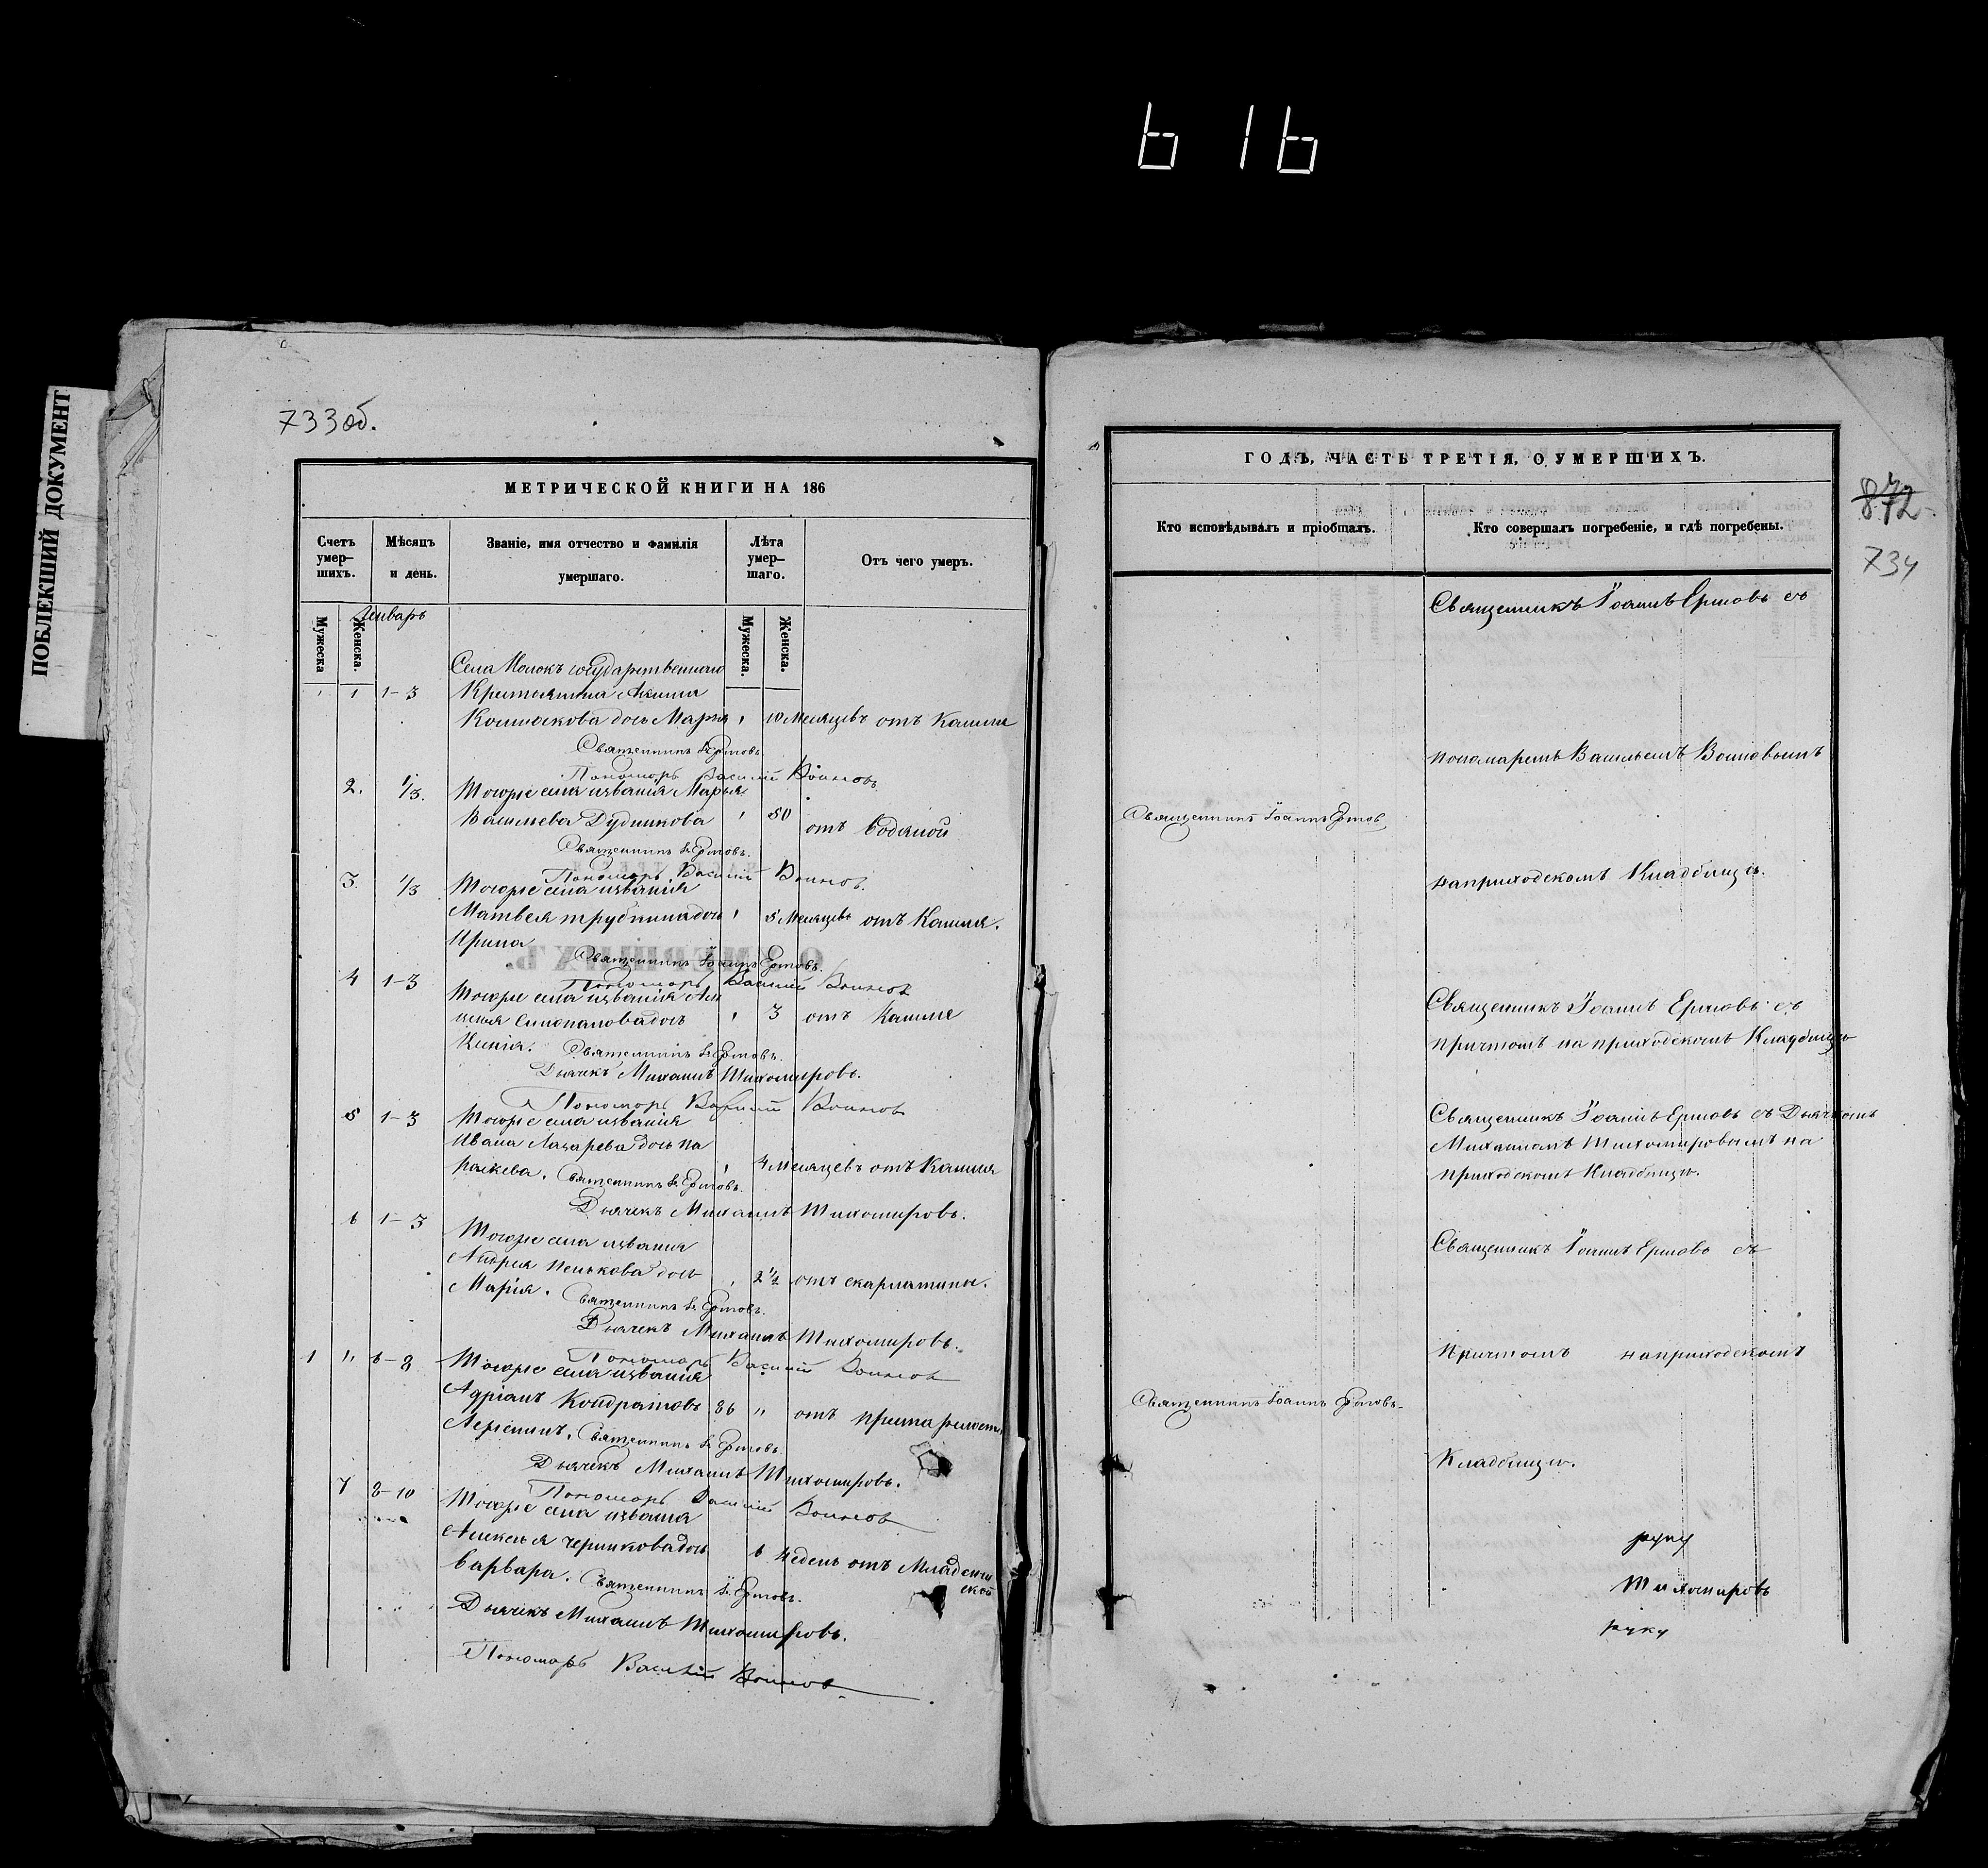 616
ПОБЛЕКШИЙ ДОКУМЕНТ
733 об.
МЕТРИЧЕСКОЙ КНИГИ НА 186
Счетъ умер-шихъ.
Мѣсяцъ и день.
Званіе, имя отчество и фамилія умершаго.
Лѣта умер-шаго.
Отъ чего умеръ.
Мужеска
Женска.
Мужеска.
Женска.
Январь
Села Молокъ государственнаго
1 1-3 Крестьянина Акима
дочь Марья 10 месяцевъ отъ Кашля
Священникъ Ершовъ
Пономарь Василій Воиновъ
2. 1/3. Тогоже села и званія Марья
Васильева Дудникова 50 отъ водяной
Священникъ Ершовъ.
Пономарь Василій Воиновъ.
3. 1/3 Тогоже села и званія
Матвея дочь 5 месяцевъ отъ Кашля.
Ирина
Священникъ Іоаннъ Ершовъ.
Пономарь Василій Воиновъ
4 1-3 Тогоже села и званія Але
дочь 3 отъ Кашля
Священникъ Ершовъ.
Дьячекъ Михаилъ Тихомировъ.
Пономарь Василій Воиновъ
5 1-3 Тогоже села и званія
Ивана Лазарева дочь Па
раскева. 4 месяцевъ отъ Кашля
Священникъ Ершовъ.
Дьячекъ Михаилъ Тихомировъ.
6 1-3 Тогоже села и званія
Андрея Пенькова дочь
Марія. 2 1/2 отъ скарлатины.
Священникъ Ершовъ.
Дьячекъ Михаилъ Тихомировъ.
Пономарь Василій Воиновъ
1 " 6-8 Тогоже села и званія
Адріанъ Кондратовъ 86 " отъ
Священникъ Ершовъ.
Дьячекъ Михаилъ Тихомировъ.
Пономарь Василій Воиновъ
7 8-10 Тогоже села и званія
Алексея дочь 6 недель отъ Младенче
Варвара. ской
Священникъ Ершовъ.
Дьячекъ Михаилъ Тихомировъ.
Пономарь Василій Воиновъ
ГОДЪ, ЧАСТЬ ТРЕТІЯ, О УМЕРШИХЪ.
872
734
Кто исповѣдывалъ и пріобщалъ.
Кто совершалъ погребеніе, и гдѣ погребены.
Священникъ Іоаннъ Ершовъ съ
пономаремъ Васильемъ Воиновымъ
Священникъ Іоаннъ Ершовъ
на приходскомъ Кладбище.
Священникъ Іоаннъ Ершовъ съ
причтомъ на приходскомъ Кладбище
Священникъ Іоаннъ Ершовъ съ Дьячкомъ
Михаиломъ Тихомировымъ на
приходскомъ Кладбище.
Священникъ Іоаннъ Ершовъ съ
Причтомъ на приходскомъ
Священникъ Іоаннъ Ершовъ
Кладбище.
руку
Тихомировъ
руку